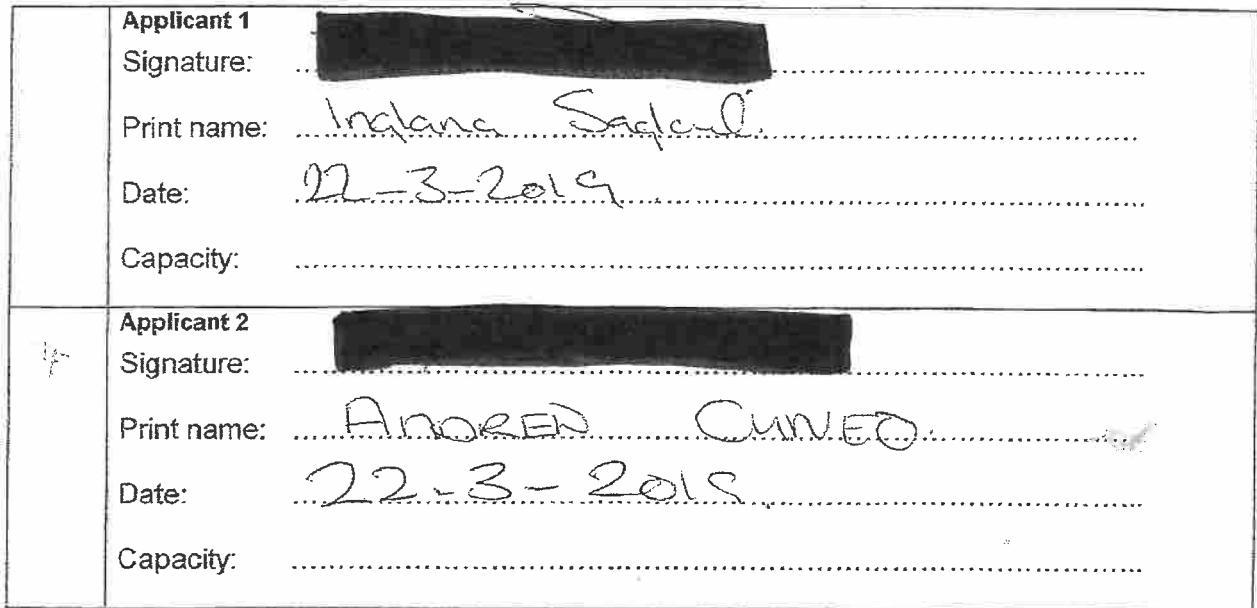 Applicant 1
Signature:
Print name: Indiana
Date: 22-3-2019
Capacity:
Applicant 2
Signature:
Print name: ANDREW CUNEO.
Date: 22-3-2019
Capacity: